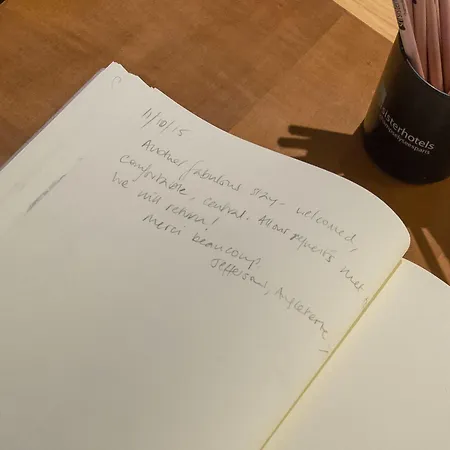 11/10/15
Another fabulous stay. welcomed,
comfortable, central. All our requests met
We will return!
Merci beaucoup.
Angleterre
sisterhotels